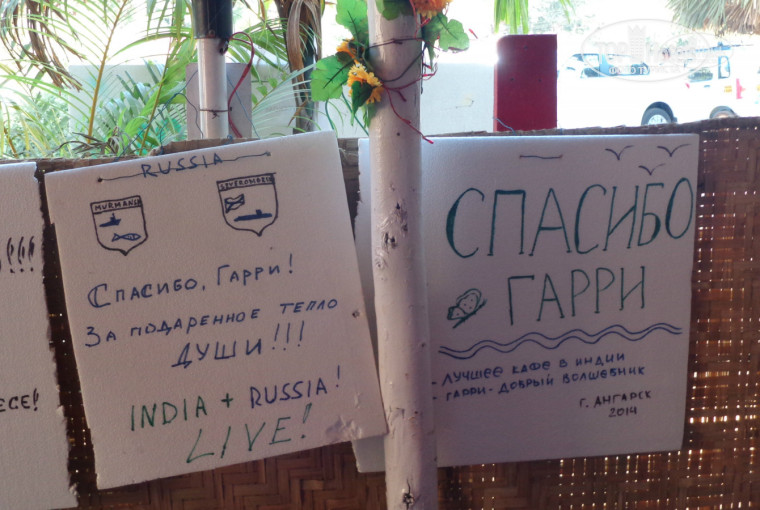 !!!
ECE!
RUSSIA
MURMANSK
SEVEROMORSK
Спасибо, Гарри!
За подаренное тепло
души!!!
INDIA + RUSSIA!
LIVE!
СПАСИБО
ГАРРИ
- лучшее кафе в Индии
- Гарри - добрый волшебник
г. Ангарск
2014